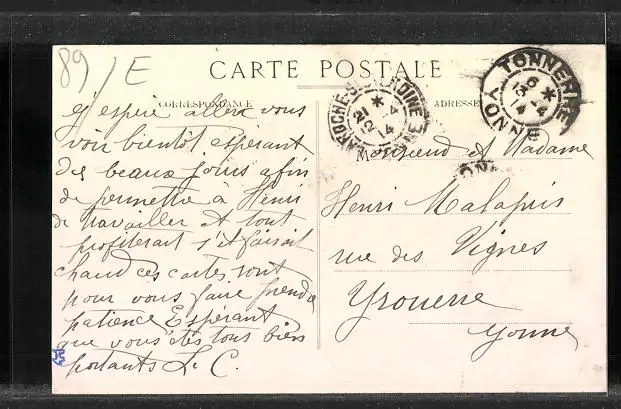 89/E
CARTE POSTALE
CORRESPONDANCE
ADRESSE
J'espère allera vous
voir bientôt espérant
des beaux jours afin
de permettre à Henri
de travailler et tout
profiterait s'il faisait
chaud ces cartes sont
pour vous faire prendre
patience Espérant
que vous êtes tous bien
portants L. C.
LAROCHE-S
21 *
12 -4
14
YONNE
TONNERRE
6 *
13 -4
14
YONNE
Monsieur et Madame
Henri Malapris
rue des Vignes
Yrouerre
Yonne